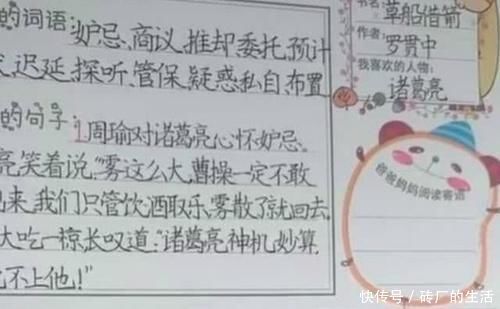 的词语:妒忌、商议、推却委托、预计
迟延、探听、管保、疑惑私自、布置
的句子:1.周瑜对诸葛亮心怀妒忌。
亮笑着说"雾这么大,曹操一定不敢
出来,我们只管饮酒取乐,雾散了就回去,
大吃一惊,长叹道:"诸葛亮神机妙算,
比不上他!"
书名:草船借箭
作者:罗贯中
我喜欢的人物:
诸葛亮
爸爸妈妈阅读寄语
快传号/砖厂的生活